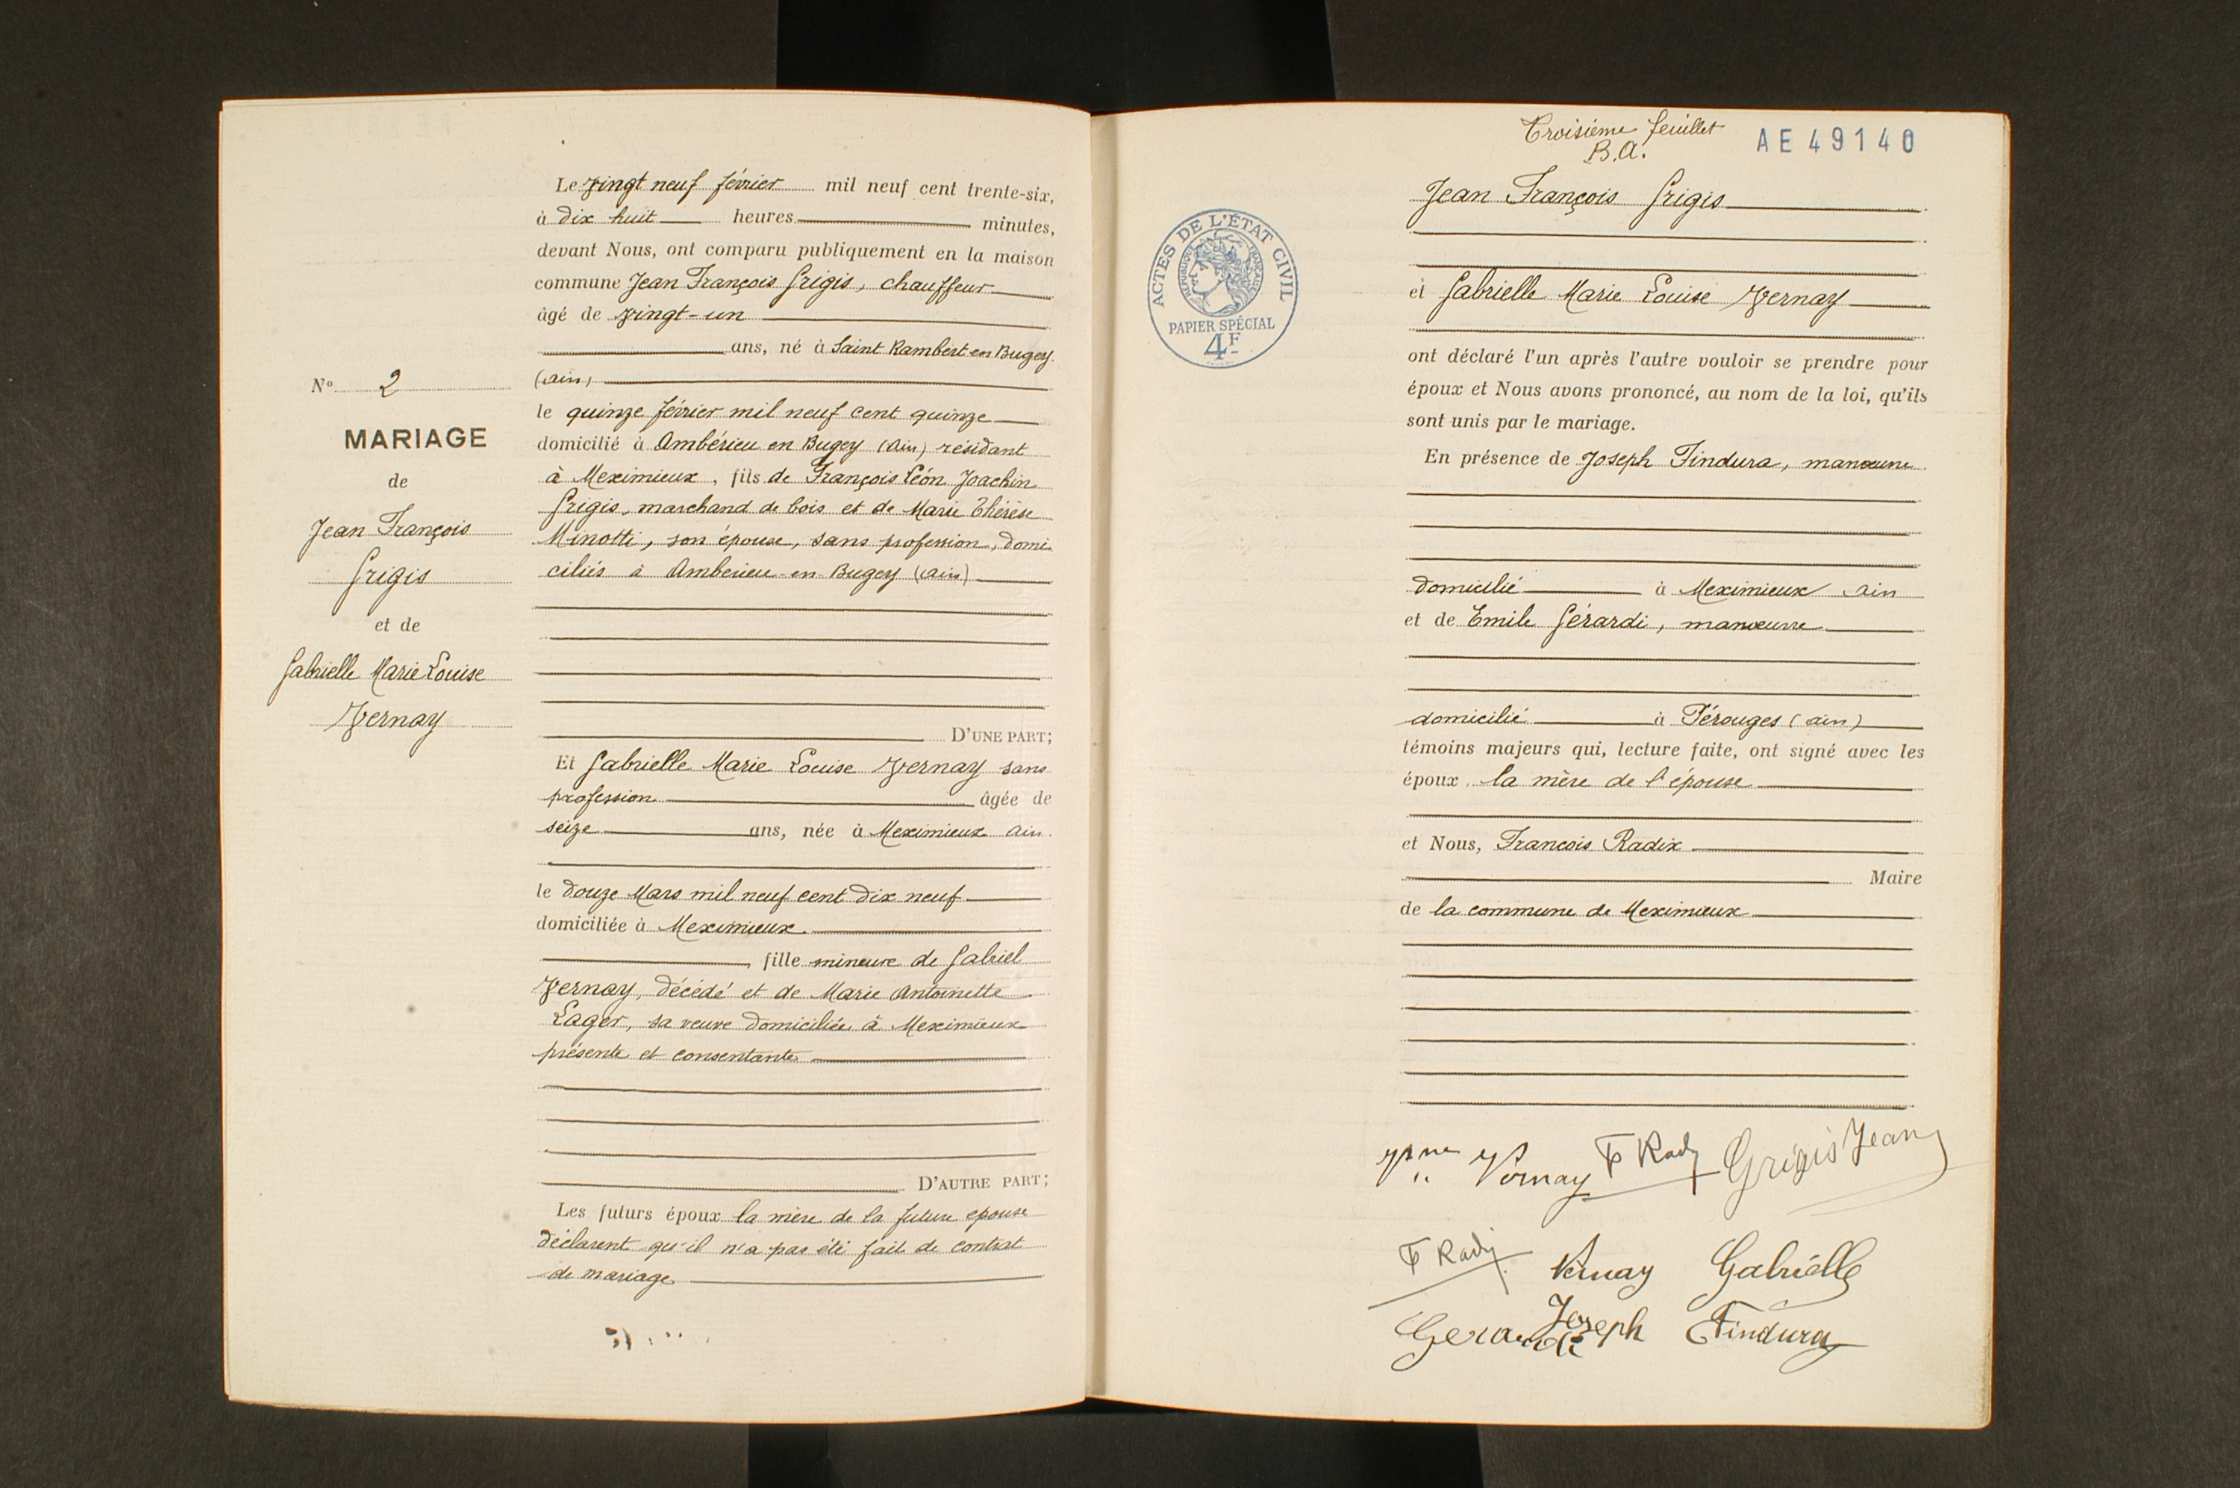 Le vingt neuf février mil neuf cent trente-six,
à dix huit heures minutes,
devant Nous, ont comparu publiquement en la maison
commune Jean François Grigis, chauffeur
âgé de vingt-un
ans, né à Saint Rambert en Bugey
(Ain)
le quinze février mil neuf cent quinze
domicilié à Ambérieu en Bugey (Ain) résidant
à Meximieux, fils de François Léon Joachin
Grigis, marchand de bois et de Marie Thérèse
Minotti, son épouse, sans profession, domi
ciliés à Amberieu-en-Bugey (Ain)
D'UNE PART;
Et Gabrielle Marie Louise Vernay sans
profession âgée de
seize ans, née à Meximieux Ain
le douze Mars mil neuf cent dix neuf
domiciliée à Meximieux
, fille mineure de Gabriel
Vernay, décédé et de Marie Antoinette
Lager, sa veuve domiciliée à Meximieux
présente et consentante
D'AUTRE PART;
Les futurs époux la mère de la future epouse
déclarent qu'il n'a pas été fait de contrat
de mariage
No 2
MARIAGE
de
Jean François
Grigis
et de
Gabrielle Marie Louise
Vernay
Troisième feuillet
B.A.
AE 49140
ACTES DE L'ÉTAT CIVIL
RÉPUBLIQUE FRANÇAISE
PAPIER SPÉCIAL
4F
Jean François Grigis
et Gabrielle Marie Louise Vernay
ont déclaré l'un après l'autre vouloir se prendre pour
époux et Nous avons prononcé, au nom de la loi, qu'ils
sont unis par le mariage.
En présence de Joseph Findura, manœuvre
domicilié à Meximieux Ain
et de Emile Gérardi, manœuvre
domicilié à Pérouges (Ain)
témoins majeurs qui, lecture faite, ont signé avec les
époux, la mère de l'épouse
et Nous, Francois Radix
Maire
de la commune de Meximieux
Vernay F Radix Grigis Jean
F Radix Vernay Gabrielle
Gerardi Joseph Findura